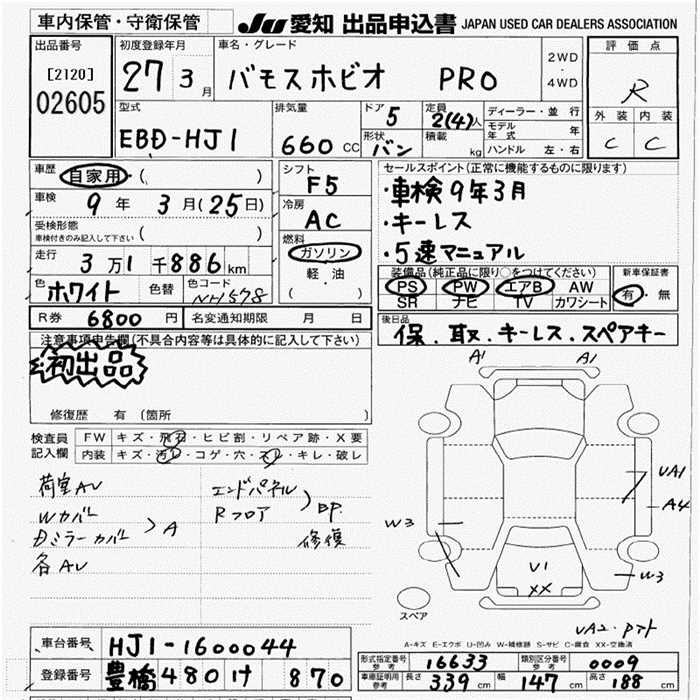 車内保管・守衛保管
JU 愛知 出品申込書 JAPAN USED CAR DEALERS ASSOCIATION
出品番号 初度登録年月 車名・グレード 評価点
[2120] 02605
27 3月 バモスホビオ PRO 2WD・4WD R
型式 排気量 ドア 定員 ディーラー・並行 外装 内装
EBD-HJ1 660cc 5 2(4)人 モデル年式 年 C C
形状 バン 積載 kg ハンドル 左・右
車歴 自家用・( ) シフト F5 セールスポイント(正常に機能するものに限ります)
車検 9年 3月(25日) 冷房 AC ・車検9年3月
受検形態 車検付きのみ記入して下さい ( ) ・キーレス
走行 3万1千886km 燃料 ガソリン ・5速マニュアル
軽・油 ( )
装備品(純正品に限り○をつけてください) 新車保証書
PS PW エアB AW 有・無
SR ナビ TV カワシート
色 ホワイト 色替 色コード NH578
R券 6800円 名変通知期限 月 日
後日品
保.取.キーレス.スペアキー
注意事項申告欄(不具合内容等は具体的に記入して下さい)
初出品
修復歴 有 (箇所 )
検査員記入欄 FW キズ・飛石・ヒビ割・リペア跡・X要
内装 キズ・汚レ・コゲ・穴・スレ・キレ・破レ
荷室AU エンドパネル
Wカバー Rフロア BP
Dミラーカバー A 修復
各AU
A1 A1
UA1
A4
W3
W3
U1
XX
スペア
A-キズ E-エクボ U-凹み W-補修跡 S-サビ C-腐食 XX-交換済
車台番号 HJ1-1600044
登録番号 豊橋 480 け 870
形式指定番号 参考 16633 類別区分番号 参考 0009
車庫証明用 参考 長さ 339cm 幅 147cm 高さ 188cm